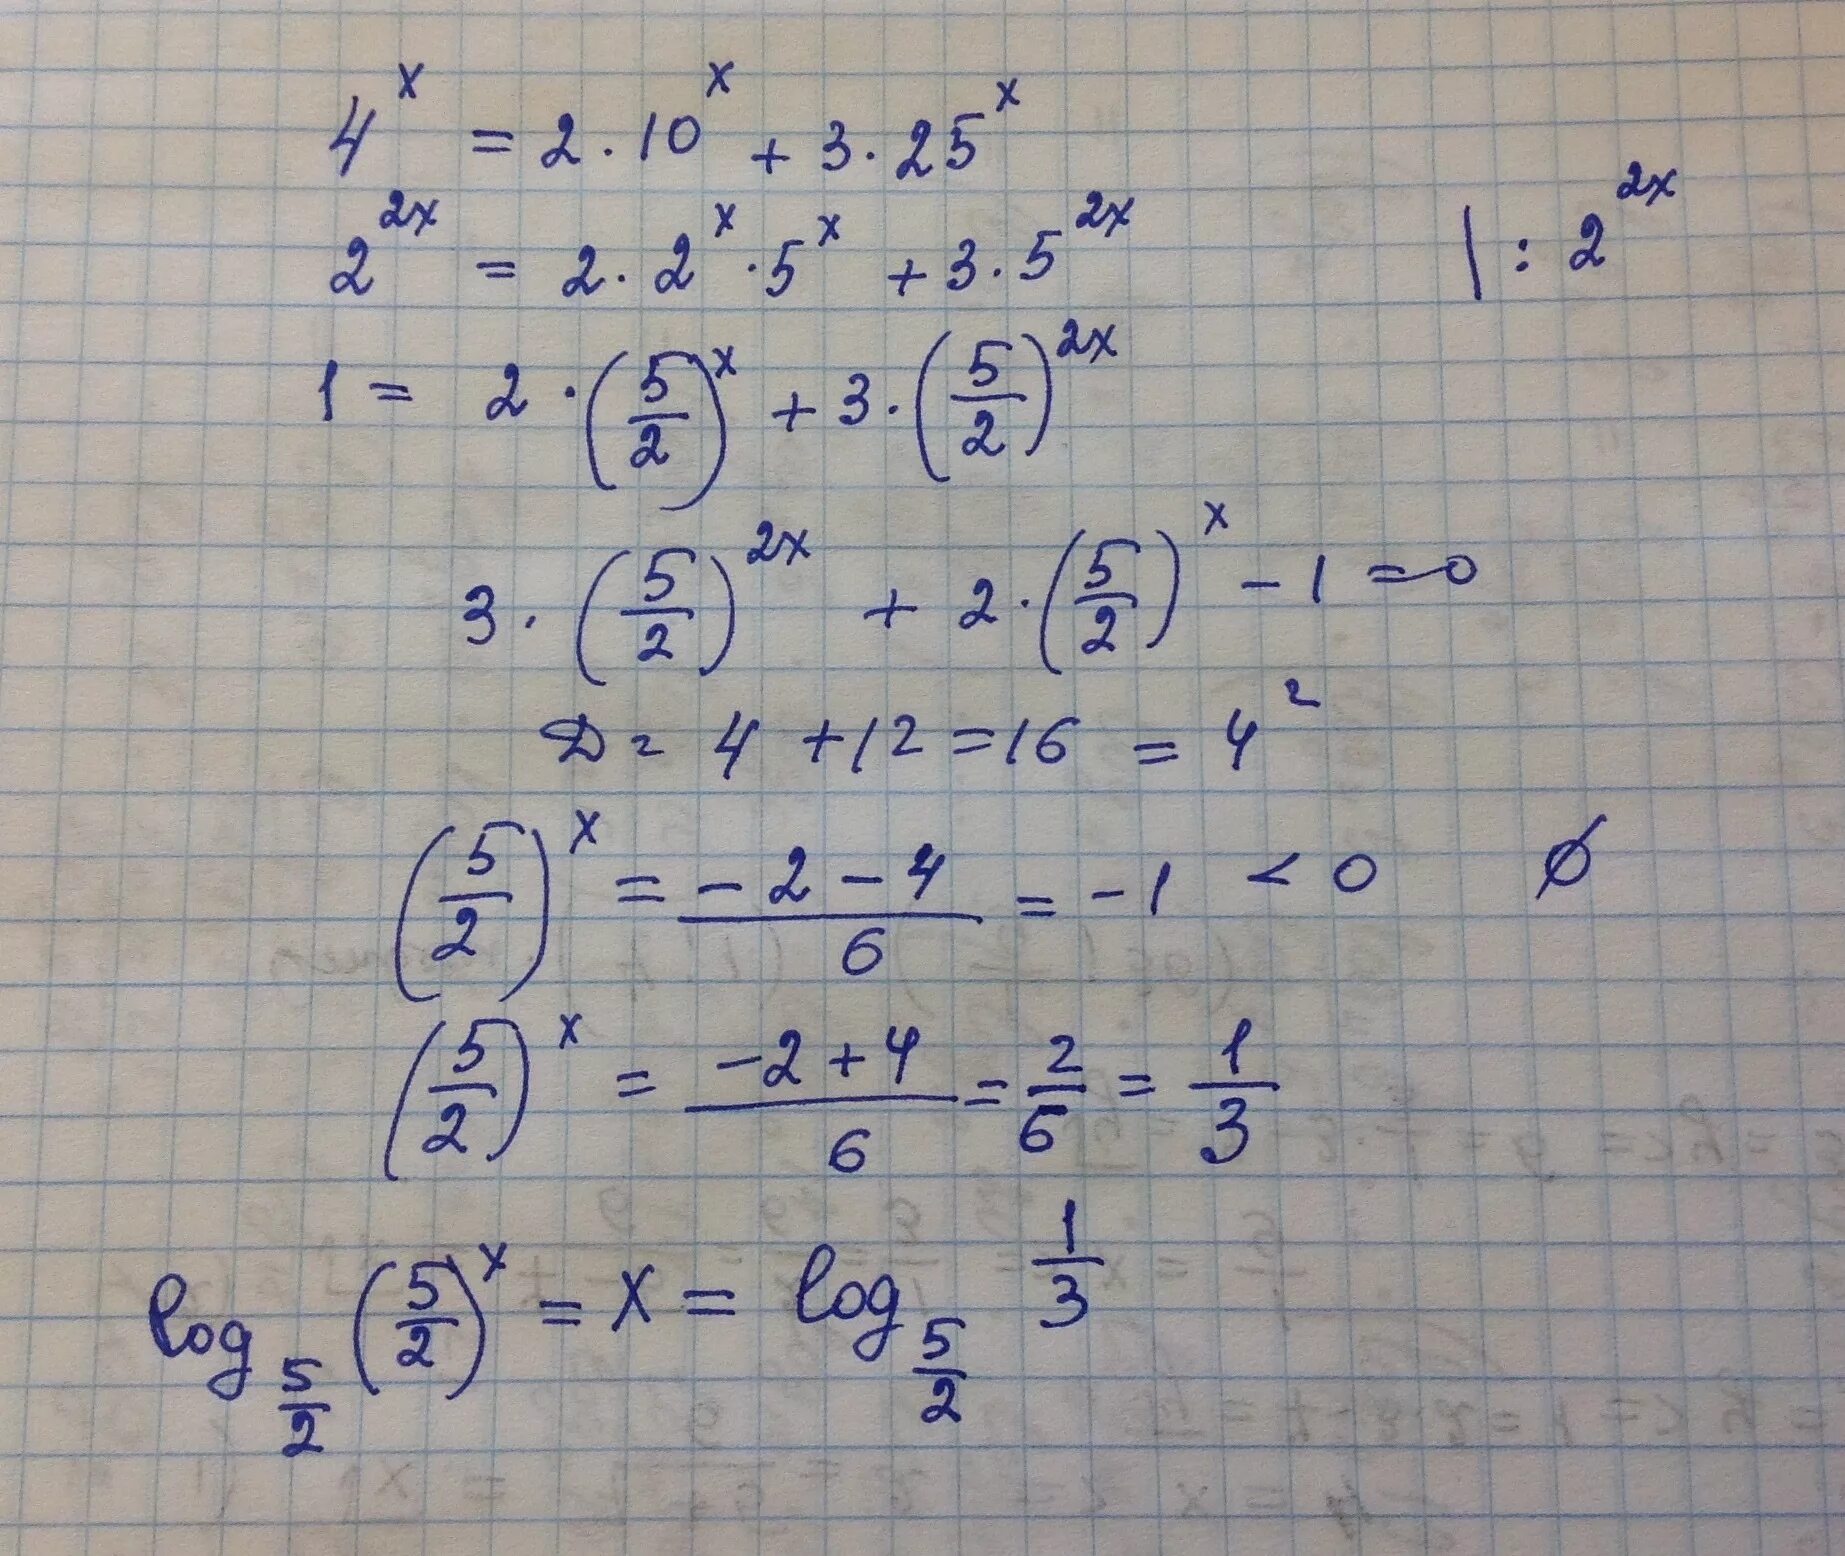 4^x = 2 · 10^x + 3 · 25^x
2^{2x} = 2 · 2^x · 5^x + 3 · 5^{2x} | : 2^{2x}
1 = 2 · (5/2)^x + 3 · (5/2)^{2x}
3 · (5/2)^{2x} + 2 · (5/2)^x - 1 = 0
D = 4 + 12 = 16 = 4^2
(5/2)^x = (-2-4)/6 = -1 < 0 ∅
(5/2)^x = (-2+4)/6 = 2/6 = 1/3
log_{5/2} (5/2)^x = x = log_{5/2} 1/3